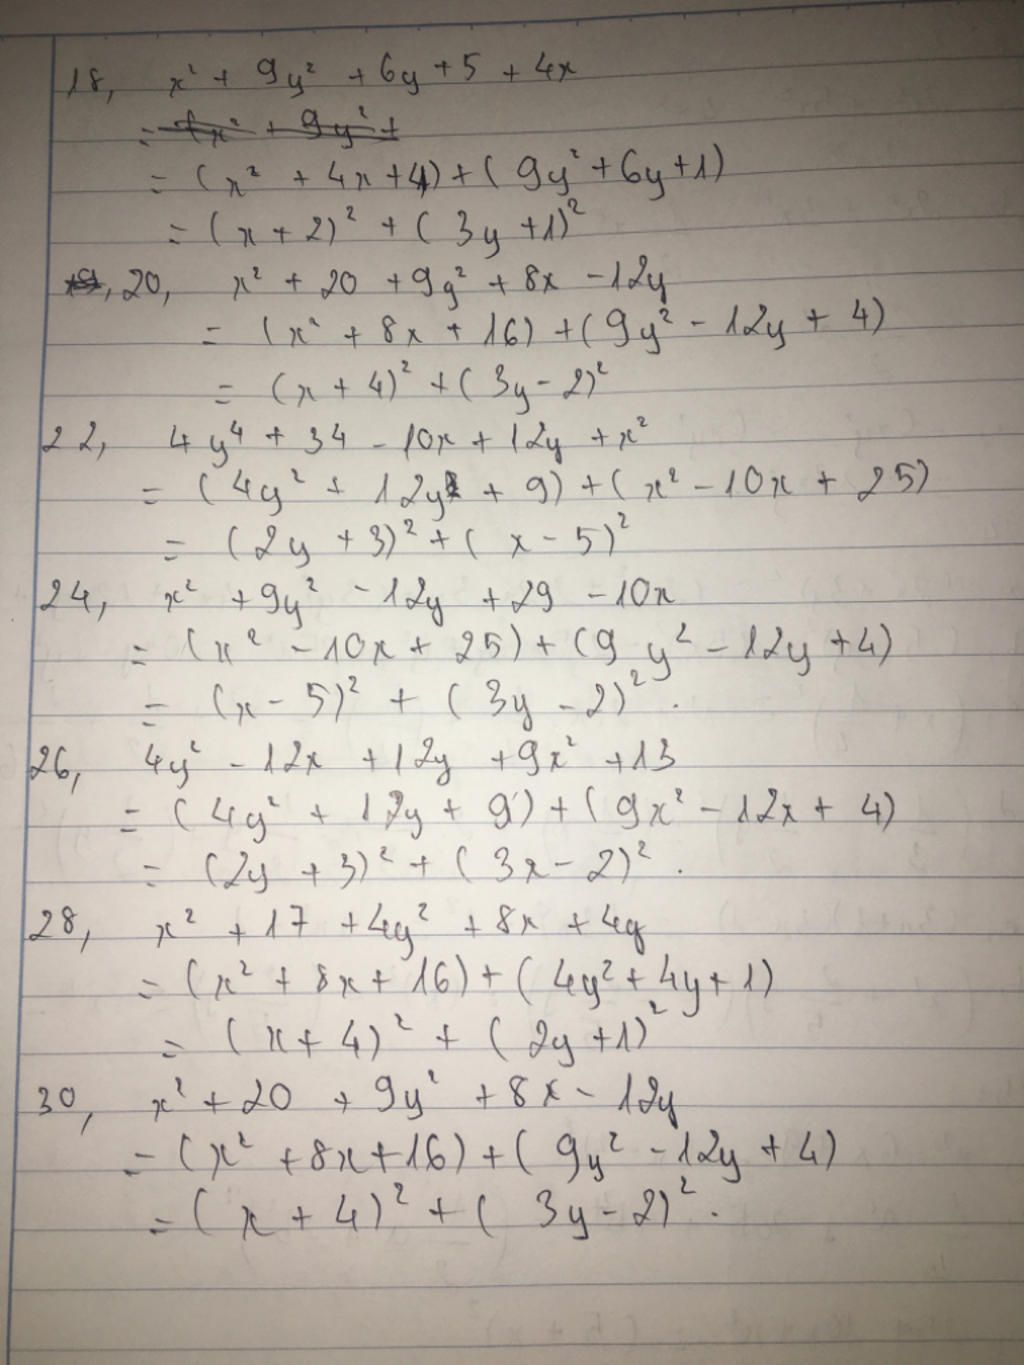 18, x² + 9y² + 6y + 5 + 4x
= (x² + 4x + 4) + (9y² + 6y + 1)
= (x + 2)² + (3y + 1)²
20, x² + 20 + 9y² + 8x - 12y
= (x² + 8x + 16) + (9y² - 12y + 4)
= (x + 4)² + (3y - 2)²
22, 4y⁴ + 34 - 10x + 12y + x²
= (4y² + 12y + 9) + (x² - 10x + 25)
= (2y + 3)² + (x - 5)²
24, x² + 9y² - 12y + 29 - 10x
= (x² - 10x + 25) + (9y² - 12y + 4)
= (x - 5)² + (3y - 2)².
26, 4y² - 12x + 12y + 9x² + 13
= (4y² + 12y + 9) + (9x² - 12x + 4)
= (2y + 3)² + (3x - 2)².
28, x² + 17 + 4y² + 8x + 4y
= (x² + 8x + 16) + (4y² + 4y + 1)
= (x + 4)² + (2y + 1)²
30, x² + 20 + 9y² + 8x - 12y
= (x² + 8x + 16) + (9y² - 12y + 4)
= (x + 4)² + (3y - 2)².